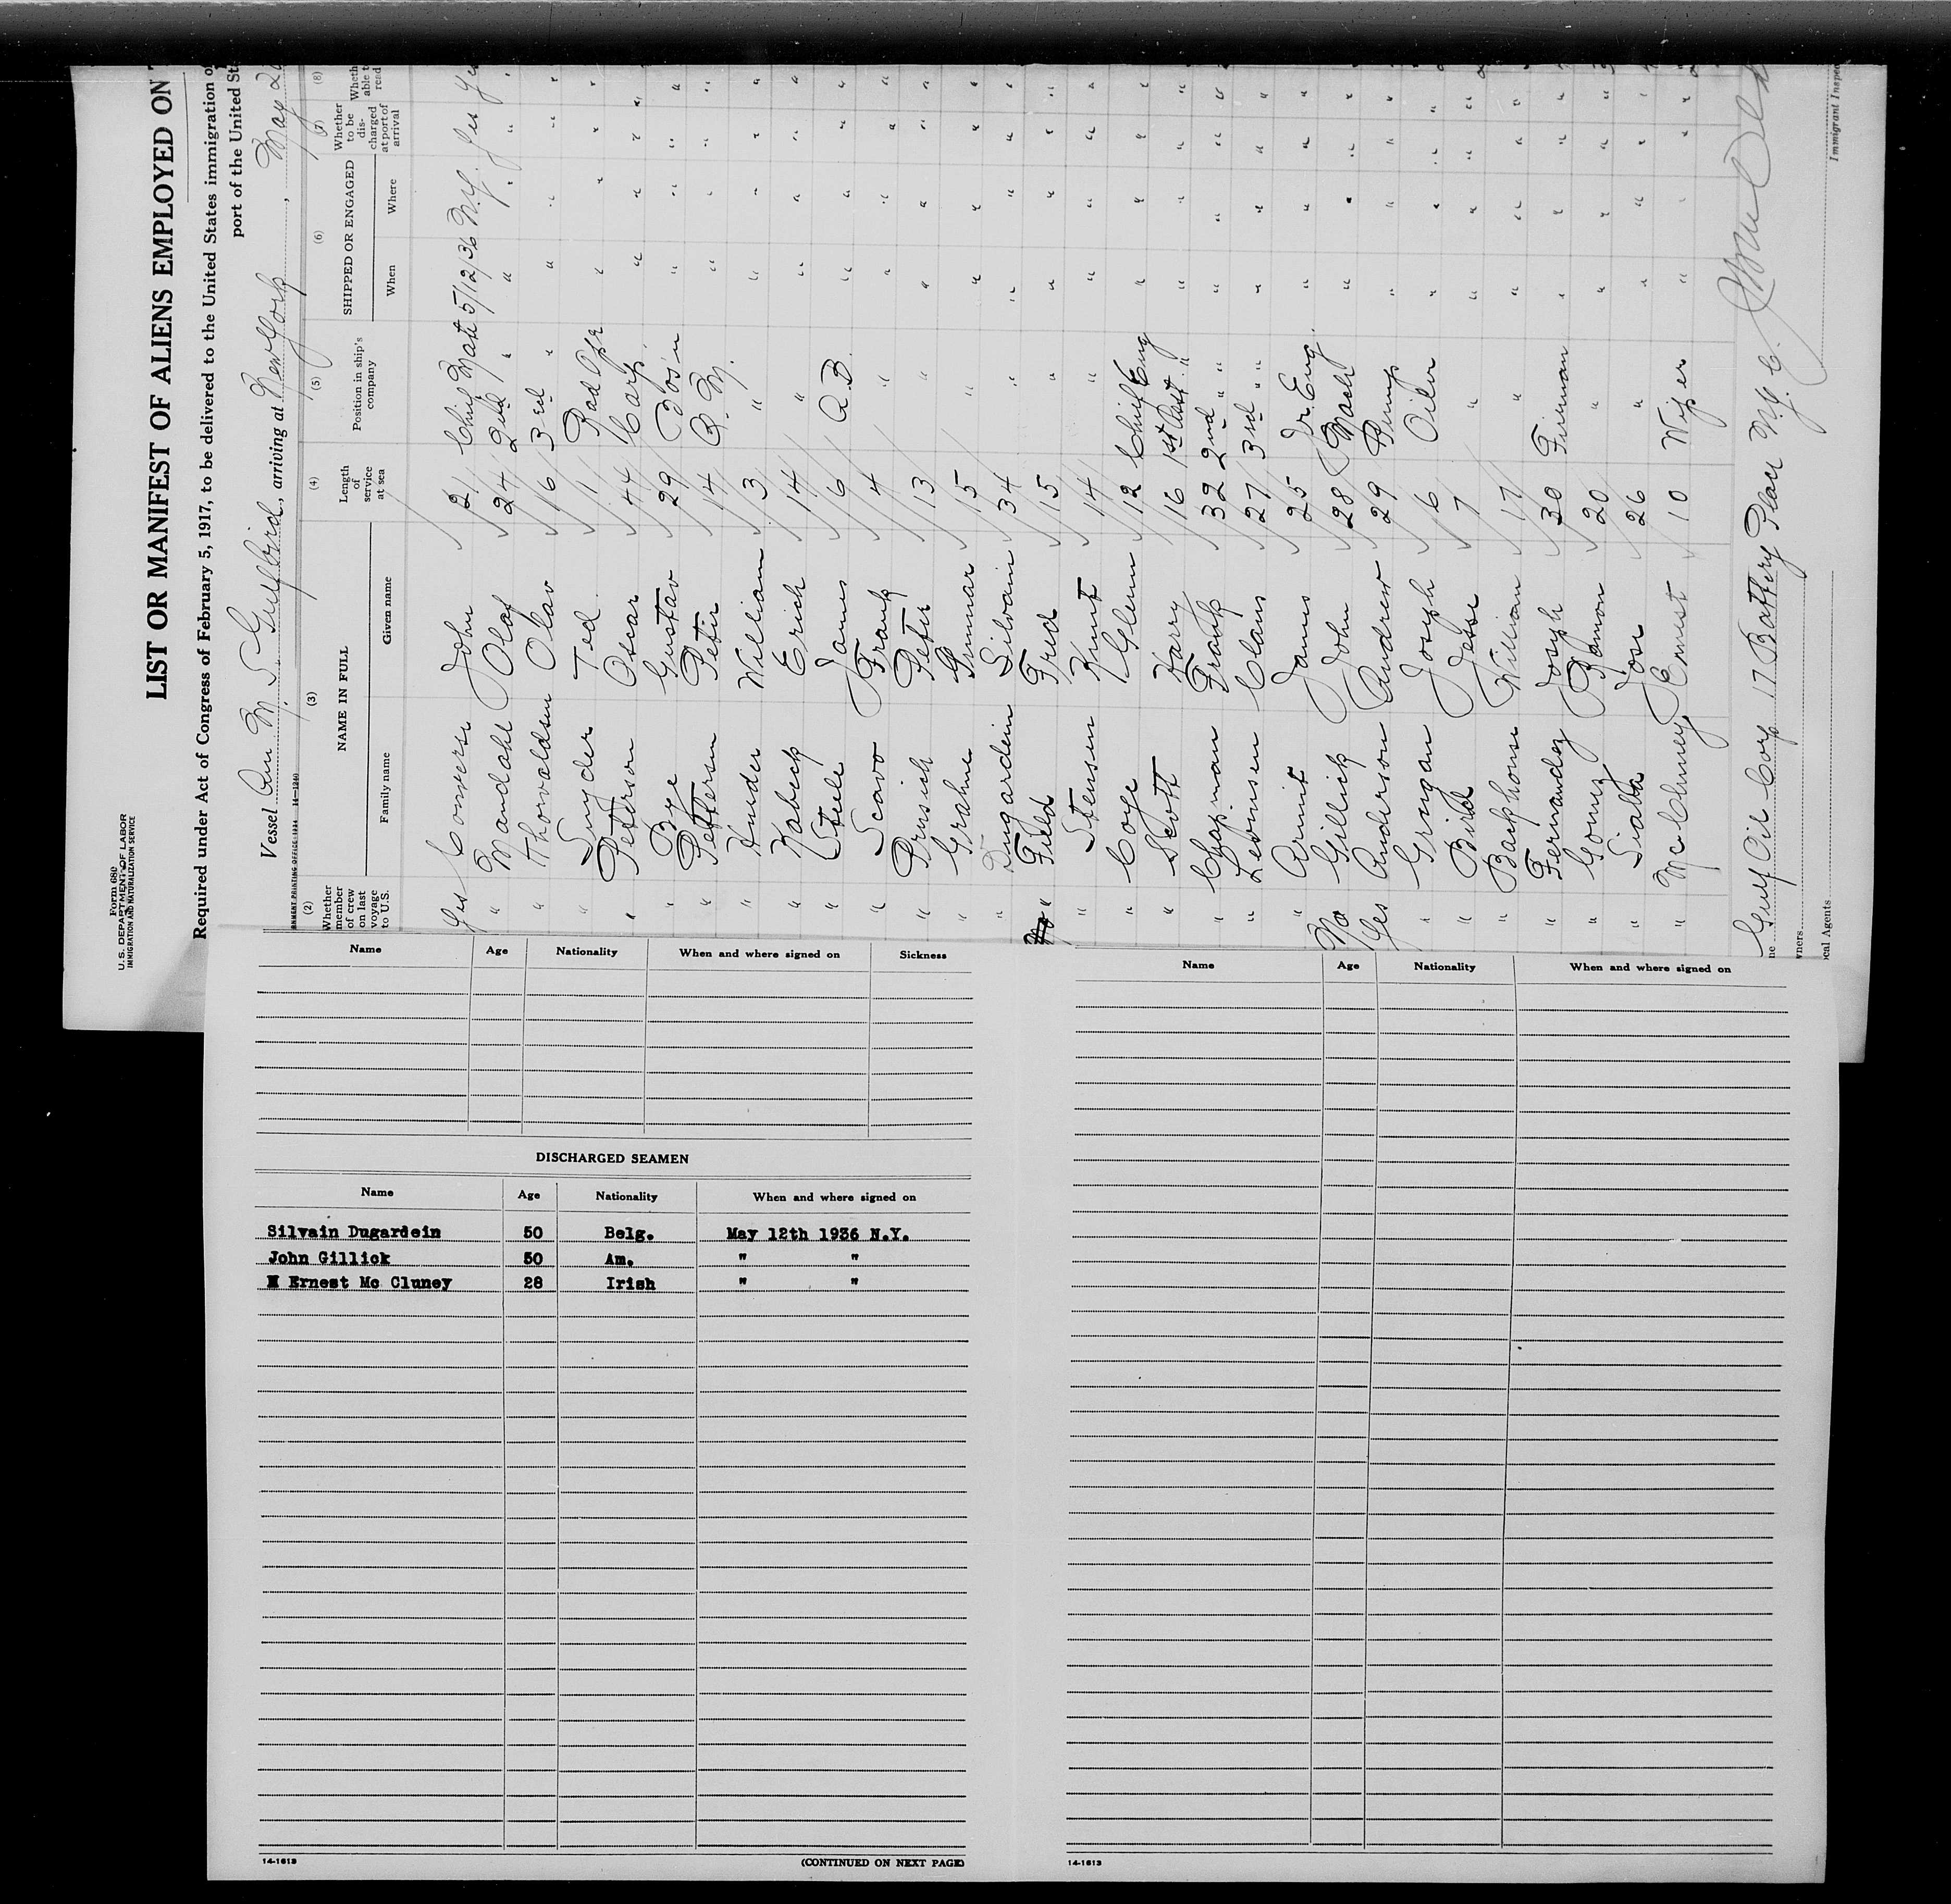 Form 680
U.S. DEPARTMENT OF LABOR
IMMIGRATION AND NATURALIZATION SERVICE
LIST OR MANIFEST OF ALIENS EMPLOYED ON
Required under Act of Congress of February 5, 1917, to be delivered to the United States immigration
port of the United
Vessel Am M. S. Gulfbird, arriving at New York, May
(2) (3) (4) (5) (6) (7) (8)
Whether member of crew on last voyage to U.S. NAME IN FULL Length of service at sea Position in ship's company SHIPPED OR ENGAGED Whether to be discharged at port of arrival
Family name Given name When Where
Yes Converse John 21 Chief Mate 5/12/36 N.Y. Yes Yes
" Mandahl Olaf 24 2nd " " " "
" Thorvaldsen Olav 16 3rd " " " "
" Snyder Ted 1 Rad Opr " " "
" Peterson Oscar 44 Carp. " " "
" Bye Gustav 29 Bos'n " " "
" Petterson Peter 14 Q. M. " " "
" Hunder William 3 " " " "
" Kabick Erich 14 " " " "
" Steele James 6 A.B. " " "
" Scavo Frank 4 " " " "
" Prusich Peter 13 " " " "
" Grahne Gunnar 15 " " " "
" Dugardein Silvain 34 " " " "
" Field Fred 15 " " " "
" Stensen Knut 14 " " " "
" Coye Glenn 12 Chief Eng " " "
" Scott Harry 16 1st Asst " " " "
" Chapman Frank 32 2nd " " " " "
" Levinsen Claus 27 3rd " " " " "
" Armit James 25 Jr. Eng. " " "
No Gillick John 28 Mach " " "
Yes Anderson Andrew 29 Pump " " "
" Grangan Joseph 6 Oiler " " "
" Bird Jesse 7 " " " "
" Backhouse William 17 " " " "
" Fernandez Joseph 30 Fireman " " "
" Gomez Ramon 20 " " " "
" Sialla Jose 26 " " " "
" McCluney Ernest 10 Wiper " " "
Gulf Oil Corp 17 Battery Place N.Y.C.
Immigrant
Name Age Nationality When and where signed on Sickness
DISCHARGED SEAMEN
Name Age Nationality When and where signed on
Silvain Dugardein 50 Belg. May 12th 1936 N.Y.
John Gillick 50 Am. " "
Ernest Mc Cluney 28 Irish " "
14-1613 (CONTINUED ON NEXT PAGE)
Name Age Nationality When and where signed on
14-1613